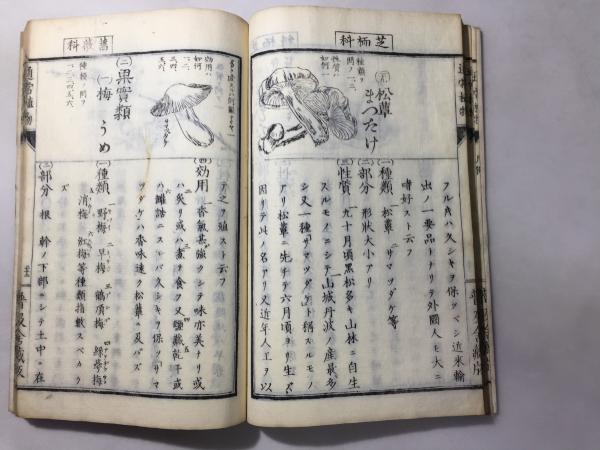 芝栭科
フルキハ久シキヲ保ツベシ近来輸
出ノ一要品トナリテ外國人モ大ニ
嗜好スト云フ
(五)松蕈
まつたけ
(一)種類 松蕈 サマツダケ等
(二)部分 形狀大小アリ
(三)性質 九十月頃黒松多キ山林ニ自生
スルモノニシテ山城丹波ノ産最多
シ又一種「サマツダケ」ト稱スルモノ
アリ松蕈ニ先チテ六月頃ヨリ生ズ
因リテ此ノ名アリ又近年人工ヲ以
テ之ヲ殖スト云フ
(四)効用 香氣甚強クシテ味亦美ナリ或
ハ炙リ或ハ煮テ食フ又鹽藏乾干或
ハ罐詰ニスベク久シキヲ保ツサマ
ツダケハ香味遠ク松蕈ニ及バズ
サマツダケ
(二)果實類
(一)梅 うめ
(一)種類 野梅 早梅 鶴頂梅 緑萼梅
消梅 紅梅等種類指數スベカラ
ズ
(二)部分 根 幹ノ下部ニシテ土中ニ在
通常植物